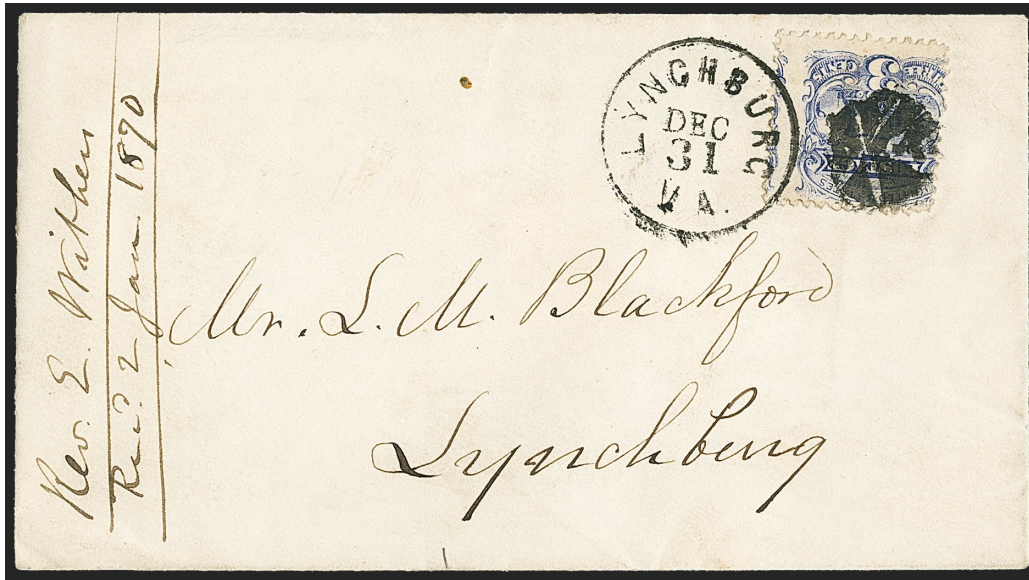 Rev. E. Withers
Rec'd. 2 Jan. 1870
LYNCHBURG
DEC
31
VA.
Mr. L. M. Blackford
Lynchburg